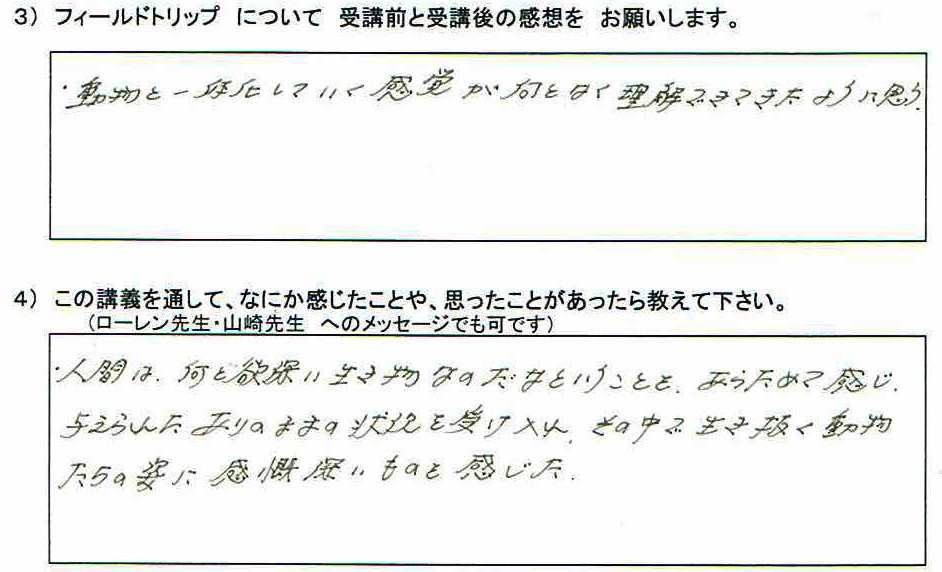 3） フィールドトリップ について 受講前と受講後の感想を お願いします。
・動物と一体化していく感覚が何となく理解できてきたように思う。
4） この講義を通して、なにか感じたことや、思ったことがあったら教えて下さい。
（ローレン先生・山崎先生 へのメッセージでも可です）
・人間は、何と欲深い生き物なのだなということを、あらためて感じ、
与えられたありのままの状況を受け入れ、その中で生き抜く動物
たちの姿に感慨深いものを感じた。